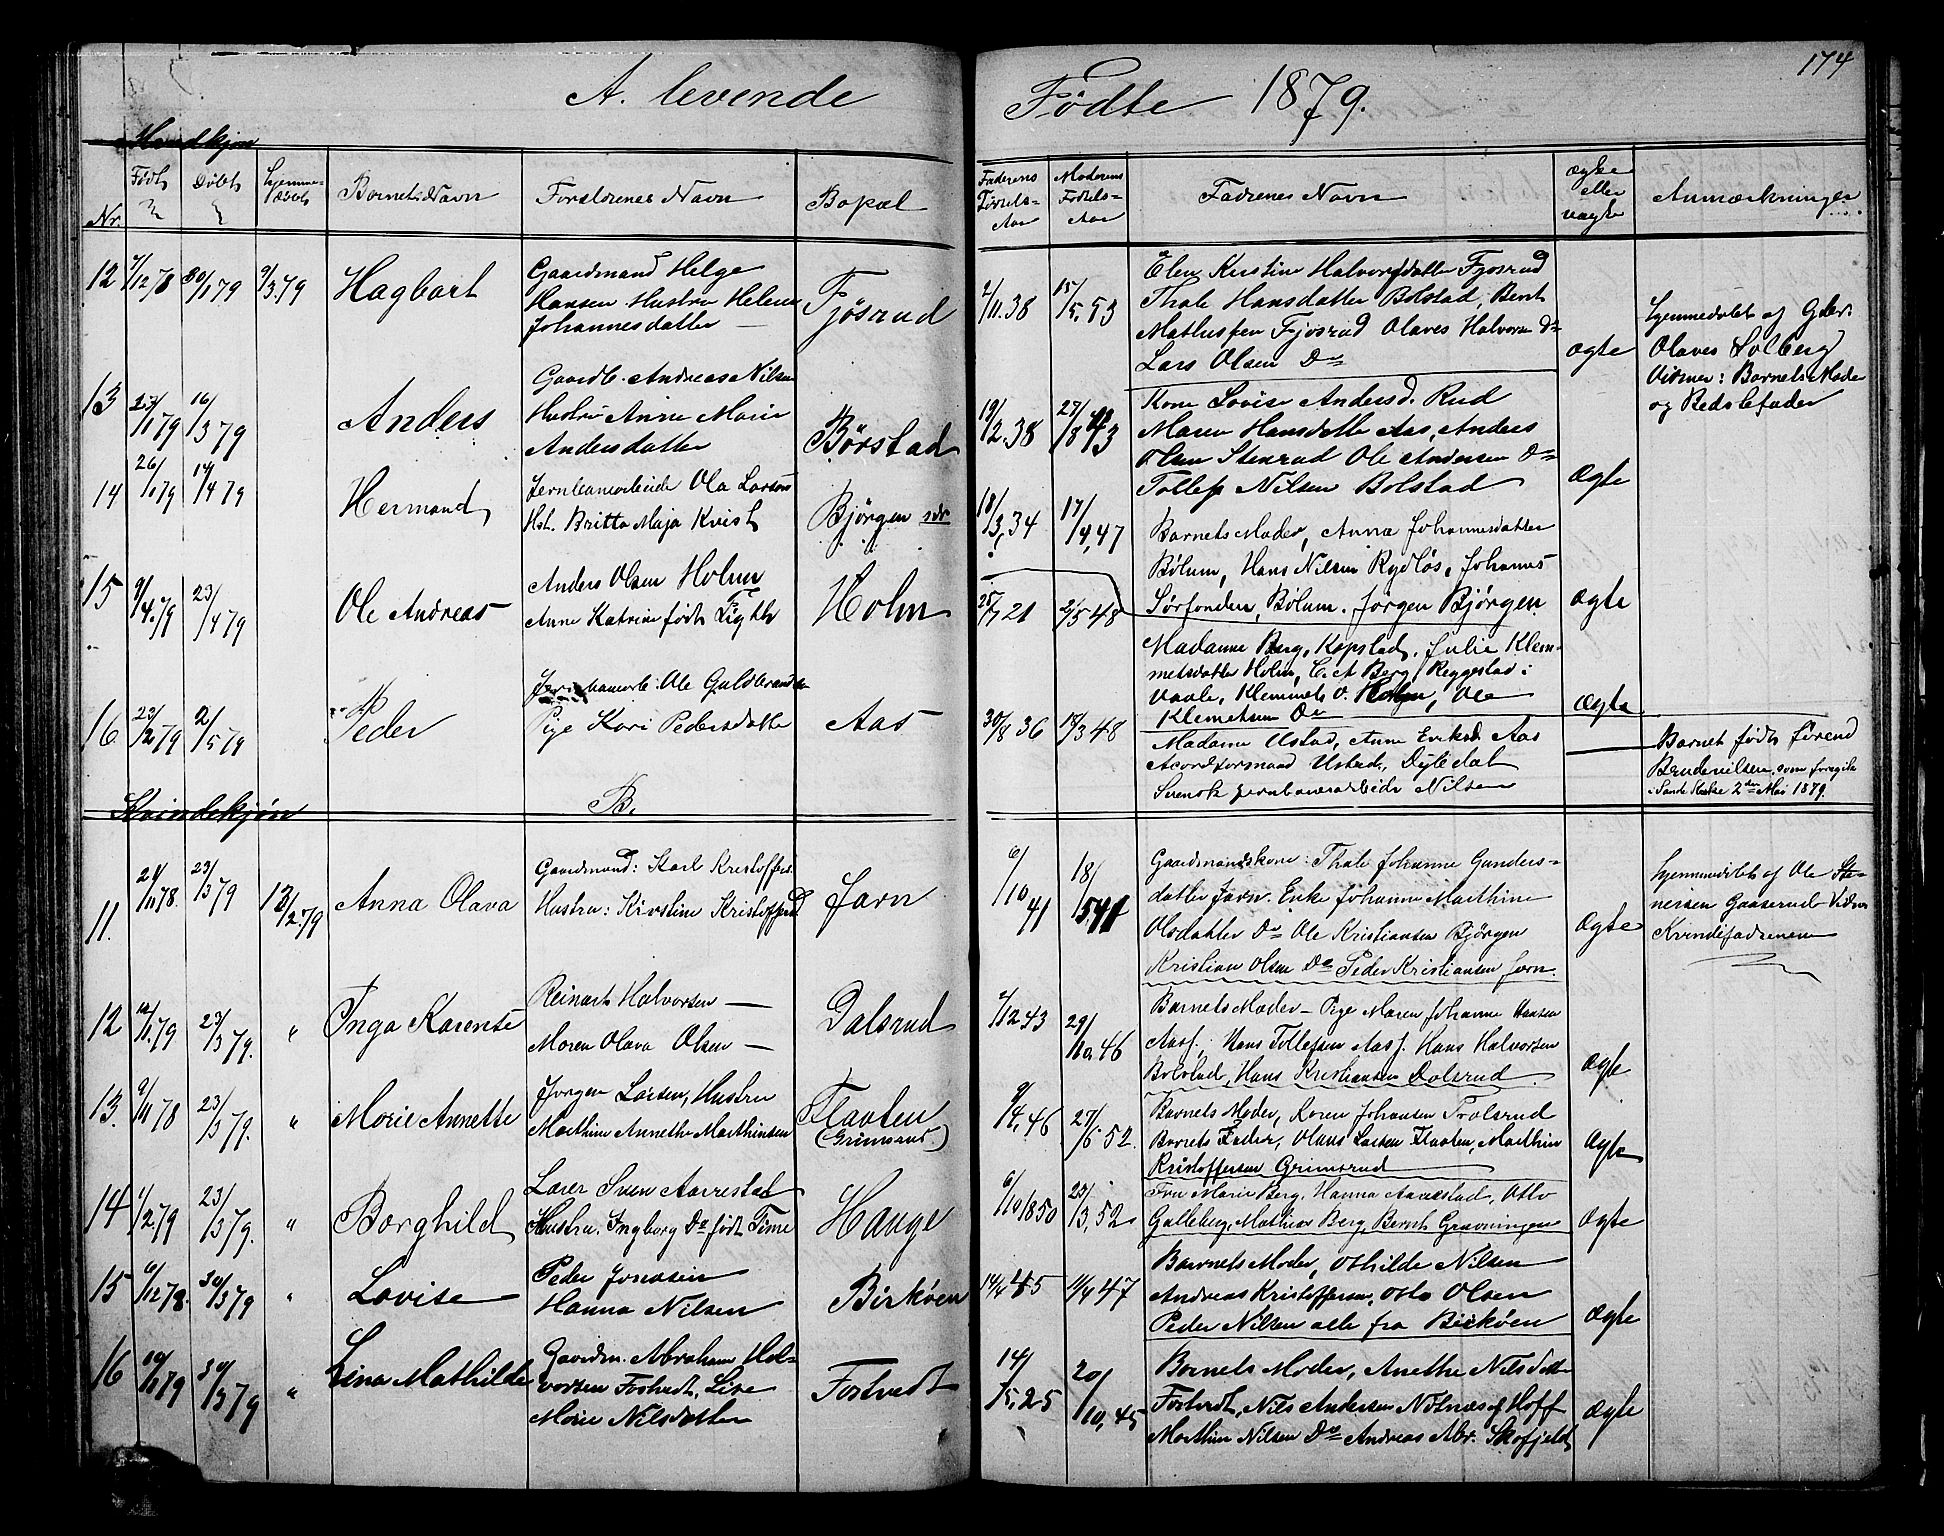 174
A. levende Fødte 1879.
Mandkjøn
Nr. Født Døbt Hjemmedøbt Barnets Navn Forældrenes Navn Bopæl Faderens Fødsels-Aar Moderens Fødsels-Aar Faddernes Navn ægte eller uægte Anmærkninger
12 7/12 78 30/1 79 9/3 79 Hagbart
Gaardmand Helge
Hansen Hustru Helene
Johannesdatter
Fjøsrud
2/11. 38 15/5. 53
Elen Kirstine Halvorsdatter Fjøsrud
Thale Hansdatter Bolstad, Bernt
Fjøsrud Olaves Halvorsen Do
Lars Olsen Do
ægte
Hjemmedøbt af Gdbr.
Olaves Solberg
Vidner: Barnets Moder
og Bedstefader
13 23/1 79 16/3 79 Anders
Gaardb. Andreas Nilsen
Hustru Anne Marie
Andersdatter
Børstad
19/2. 38 27/8 43
Kone Lovise Andersd. Rud
Maren Hansdatter Aas, Anders
Olsen Stenrud Ole Andersen Do
Tollef Nilsen Bolstad
ægte
14 26/1 79 14/4 79 Hermand
Jernbanearbeide Ola Larsen
Hst. Britta Maja Kvist
Bjørgen sdr
18/3, 34 17/4, 47
Barnets Moder, Anna Johannesdatter
Bølum, Hans Nilsen Rydløs, Johannes
Sørfonden, Bølum. Jørgen Bjørgen
ægte
15 9/4. 79 23/4 79 Ole Andreas
Anders Olsen Holm
Anne Katrine født
Holm
25/7 21 2/5 48
Madamme Berg, Kopstad, Julie Klem-
metsdatter Holm, C. A Berg Reggestad i
Vaale, Klemmet O. Holm, Ole
Klemetsen Do
ægte
16. 23/2 79 2/5 79 Peder
Jernbanearb: Ole Guldbrandsen
Pige Kari Pedersdatter
Aas
30/8 36 18/3 48
Madame Ustad, Anne Eriksd. Aas
Acordformand Ustad, Dyledal
Svensk Jernbanearbeide Nilsen
Barnet født førend
Brudevielsen, som foregik
i Sande Kirke 2den Mai 1879.
Kvindekjøn B.
11. 21/11 78. 23/3 79 13/2 79 Anna Olava
Gaardmand: Karl Kristoffers.
Hustru: Kirstine Kristoffersd
Jarn
6/10 41 18/5 41
Gaardmandskone: Thale Johanne Gunders-
datter Jarn. Enke Johanne Marthine
Olsdatter Do Ole Kristiansen Bjørgen
Kristian Olsen Do Peder Kristiansen Jarn.
ægte
Hjemmedøbt af Ole Ste-
nersen Gaaserud Vidner
Kvindefadderene
12 12/1. 79 23/3 79. " Inga Karense
Reinart Halvorsen
Maren Olava Olsen
Dalsrud
7/12 43 29/10, 46
Barnets Moder - Pige Maren Johanne Hansen
Aasf, Hans Tollefsen Aasf. Hans Halvorsen
Bolstad, Hans Kristiansen Dalsrud.
ægte
13. 9/11 78 23/3 79. " Marie Annette
Jørgen Larsen, Hustru
Marthine Annethe Marthinsen
Flaaten
(Grimsrud)
9/4, 46 27/5 52.
Barnets Moder, Karen Johansen Trolsrud
Barnets Fader, Olaus Larsen Flaaten, Marthin
Kristoffersen Grimsrud
ægte
14 1/2 79 23/3 79. " Borghild
Lærer Sven Aarrestad
Hustru. Ingborg Do født Time
Hauge
6/10 1850 23/3, 52
Fru Marie Berg, Hanna Aarrestad, Otto
Galleberg, Mathias Berg, Bernt Gravningen
ægte
15 6/12 78. 30/3 79 " Lovise
Peder Jonasen
Hanna Nilsen
Birkøen
14/4 45 11/4 47
Barnets Moder, Othilde Nilsen
Andreas Kristoffersen, Otto Olsen
Peder Nilsen alle fra Birkøen
ægte
16 10/1 79 30/3 79 " Lina Mathilde
Gaardm. Abraham Hal-
vorsen Fostvedt, Lise
Marie Nilsdatter
Fostvedt
14/5, 25 20/10, 45
Barnets Moder, Anethe Nilsdatter
Fostvedt, Nils Andersen Hoff
Marthin Nilsen Do Andreas Abr. Skofjeld
ægte